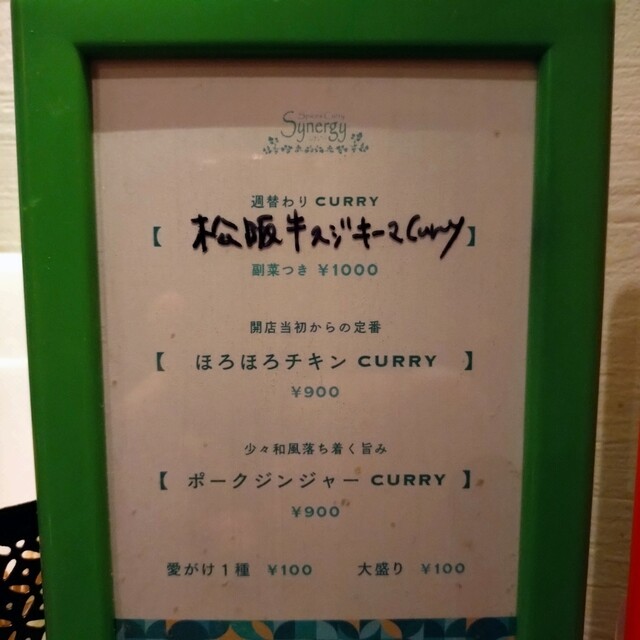 Synergy
週替わり CURRY
【 松阪牛スジキーマCurry 】
副菜つき ¥1000
開店当初からの定番
【 ほろほろチキン CURRY 】
¥900
少々和風落ち着く旨み
【 ポークジンジャー CURRY 】
¥900
愛がけ1種 ¥100 大盛り ¥100